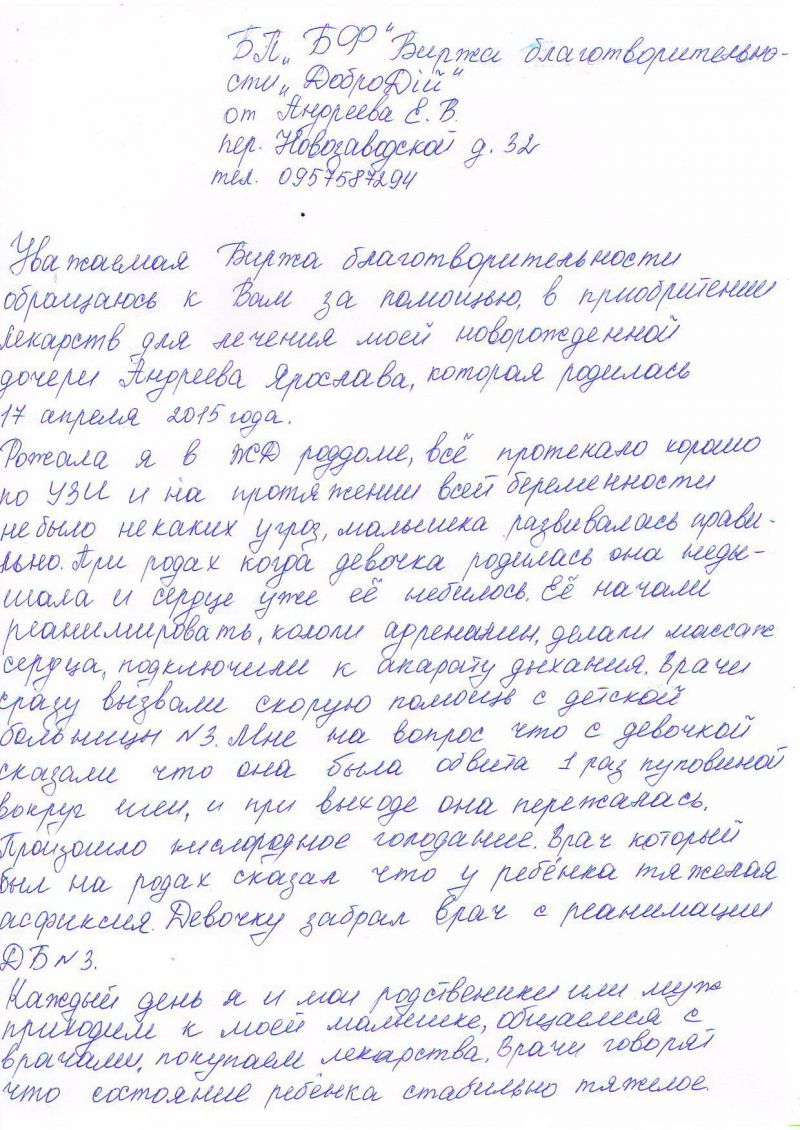 БП„ БФ "Биржа благотворительно-
сти„ ДоброДій"
от Андреева Е. В.
пер. Новозаводской д. 32
тел. 0957587294
Уважаемая Биржа благотворительности
обращаюсь к Вам за помощью, в приобритении
лекарств для лечения моей новорожденной
дочери Андреева Ярослава, которая родилась
17 апреля 2015 года.
Рожала я в ЖД роддоме, всё протекало хорошо
по УЗИ и на протяжении всей беременности
небыло некаких угроз, малышка развивалась прави-
льно. При родах когда девочка родилась она неды-
шала и сердце уже её небилось. Её начали
реанимировать, кололи адреналин, делали массаж
сердца, подключили к апарату дыхания. Врачи
сразу вызвали скорую помощь с детской
больницы №3. Мне на вопрос что с девочкой
сказали что она была обвита 1 раз пуповиной
вокруг шеи, и при выходе она пережалась.
Произошло кислородное голодание. Врач который
был на родах сказал что у ребёнка тяжелая
асфиксия. Девочку забрал врач с реанимации
ДБ №3.
Каждый день я и мои родственики или муж
приходим к моей малышке, общаемся с
врачами, покупаем лекарства. Врачи говорят
что состояние ребёнка стабильно тяжелое.